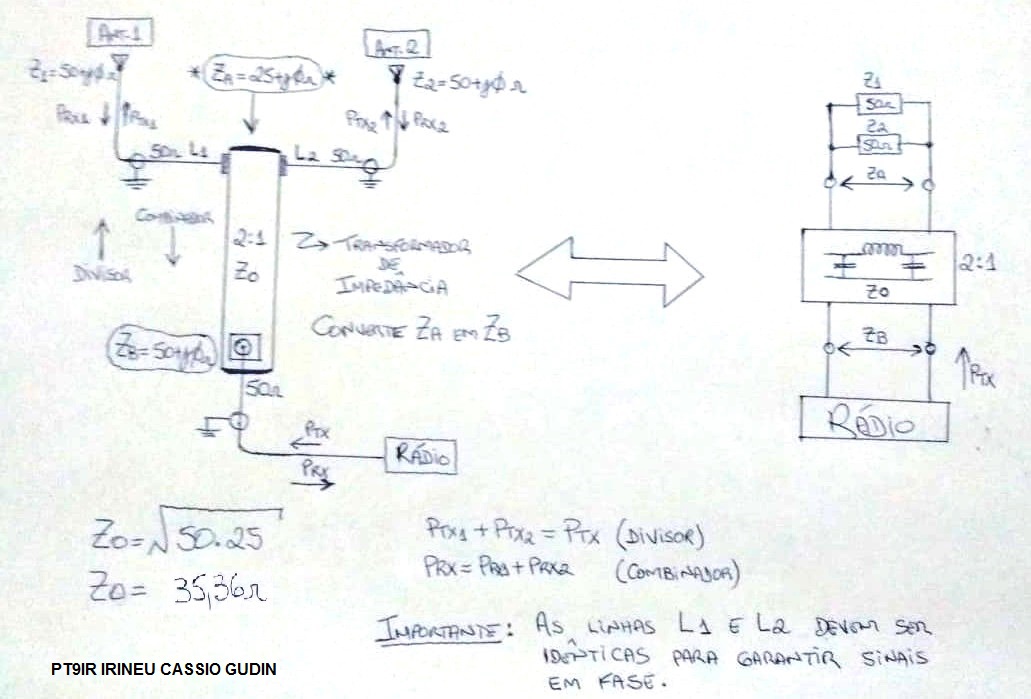 ANT.1
ANT.2
Z1=50+jφΩ
* ZA=25+jφΩ *
Z2=50+jφΩ
PRX1 PTX1
PTX2 PRX2
50Ω L1
L2 50Ω
COMBINADOR
DIVISOR
2:1
Z0
Z → TRANSFORMADOR
DE
IMPEDÂNCIA
CONVERTE ZA EM ZB
ZB=50+jφΩ
50Ω
PTX
PRX
RÁDIO
Z1
50Ω
Z2
50Ω
ZA
2:1
Z0
ZB
PTX
RÁDIO
Z0=√50.25
Z0= 35,36Ω
PTX1 + PTX2 = PTX (DIVISOR)
PRX = PR1 + PRX2 (COMBINADOR)
IMPORTANTE: AS LINHAS L1 E L2 DEVEM SER
IDÊNTICAS PARA GARANTIR SINAIS
EM FASE.
PT9IR IRINEU CASSIO GUDIN